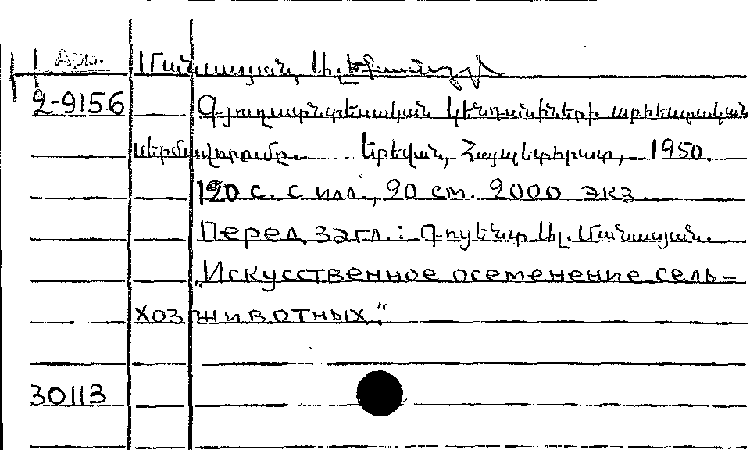 Арм. Մանասյան, Ալեքսանդր
2-9156 Գյուղատնտեսական կենդանիների արհեստական
սերմնավորումը. Երեվան, Հայպետհրատ, 1950.
120 с. с илл., 20 см. 2000 экз
Перед загл.: Դոցենտ Ալ. Մանասյան.
„Искусственное осеменение сель-
хоз животных."
30113